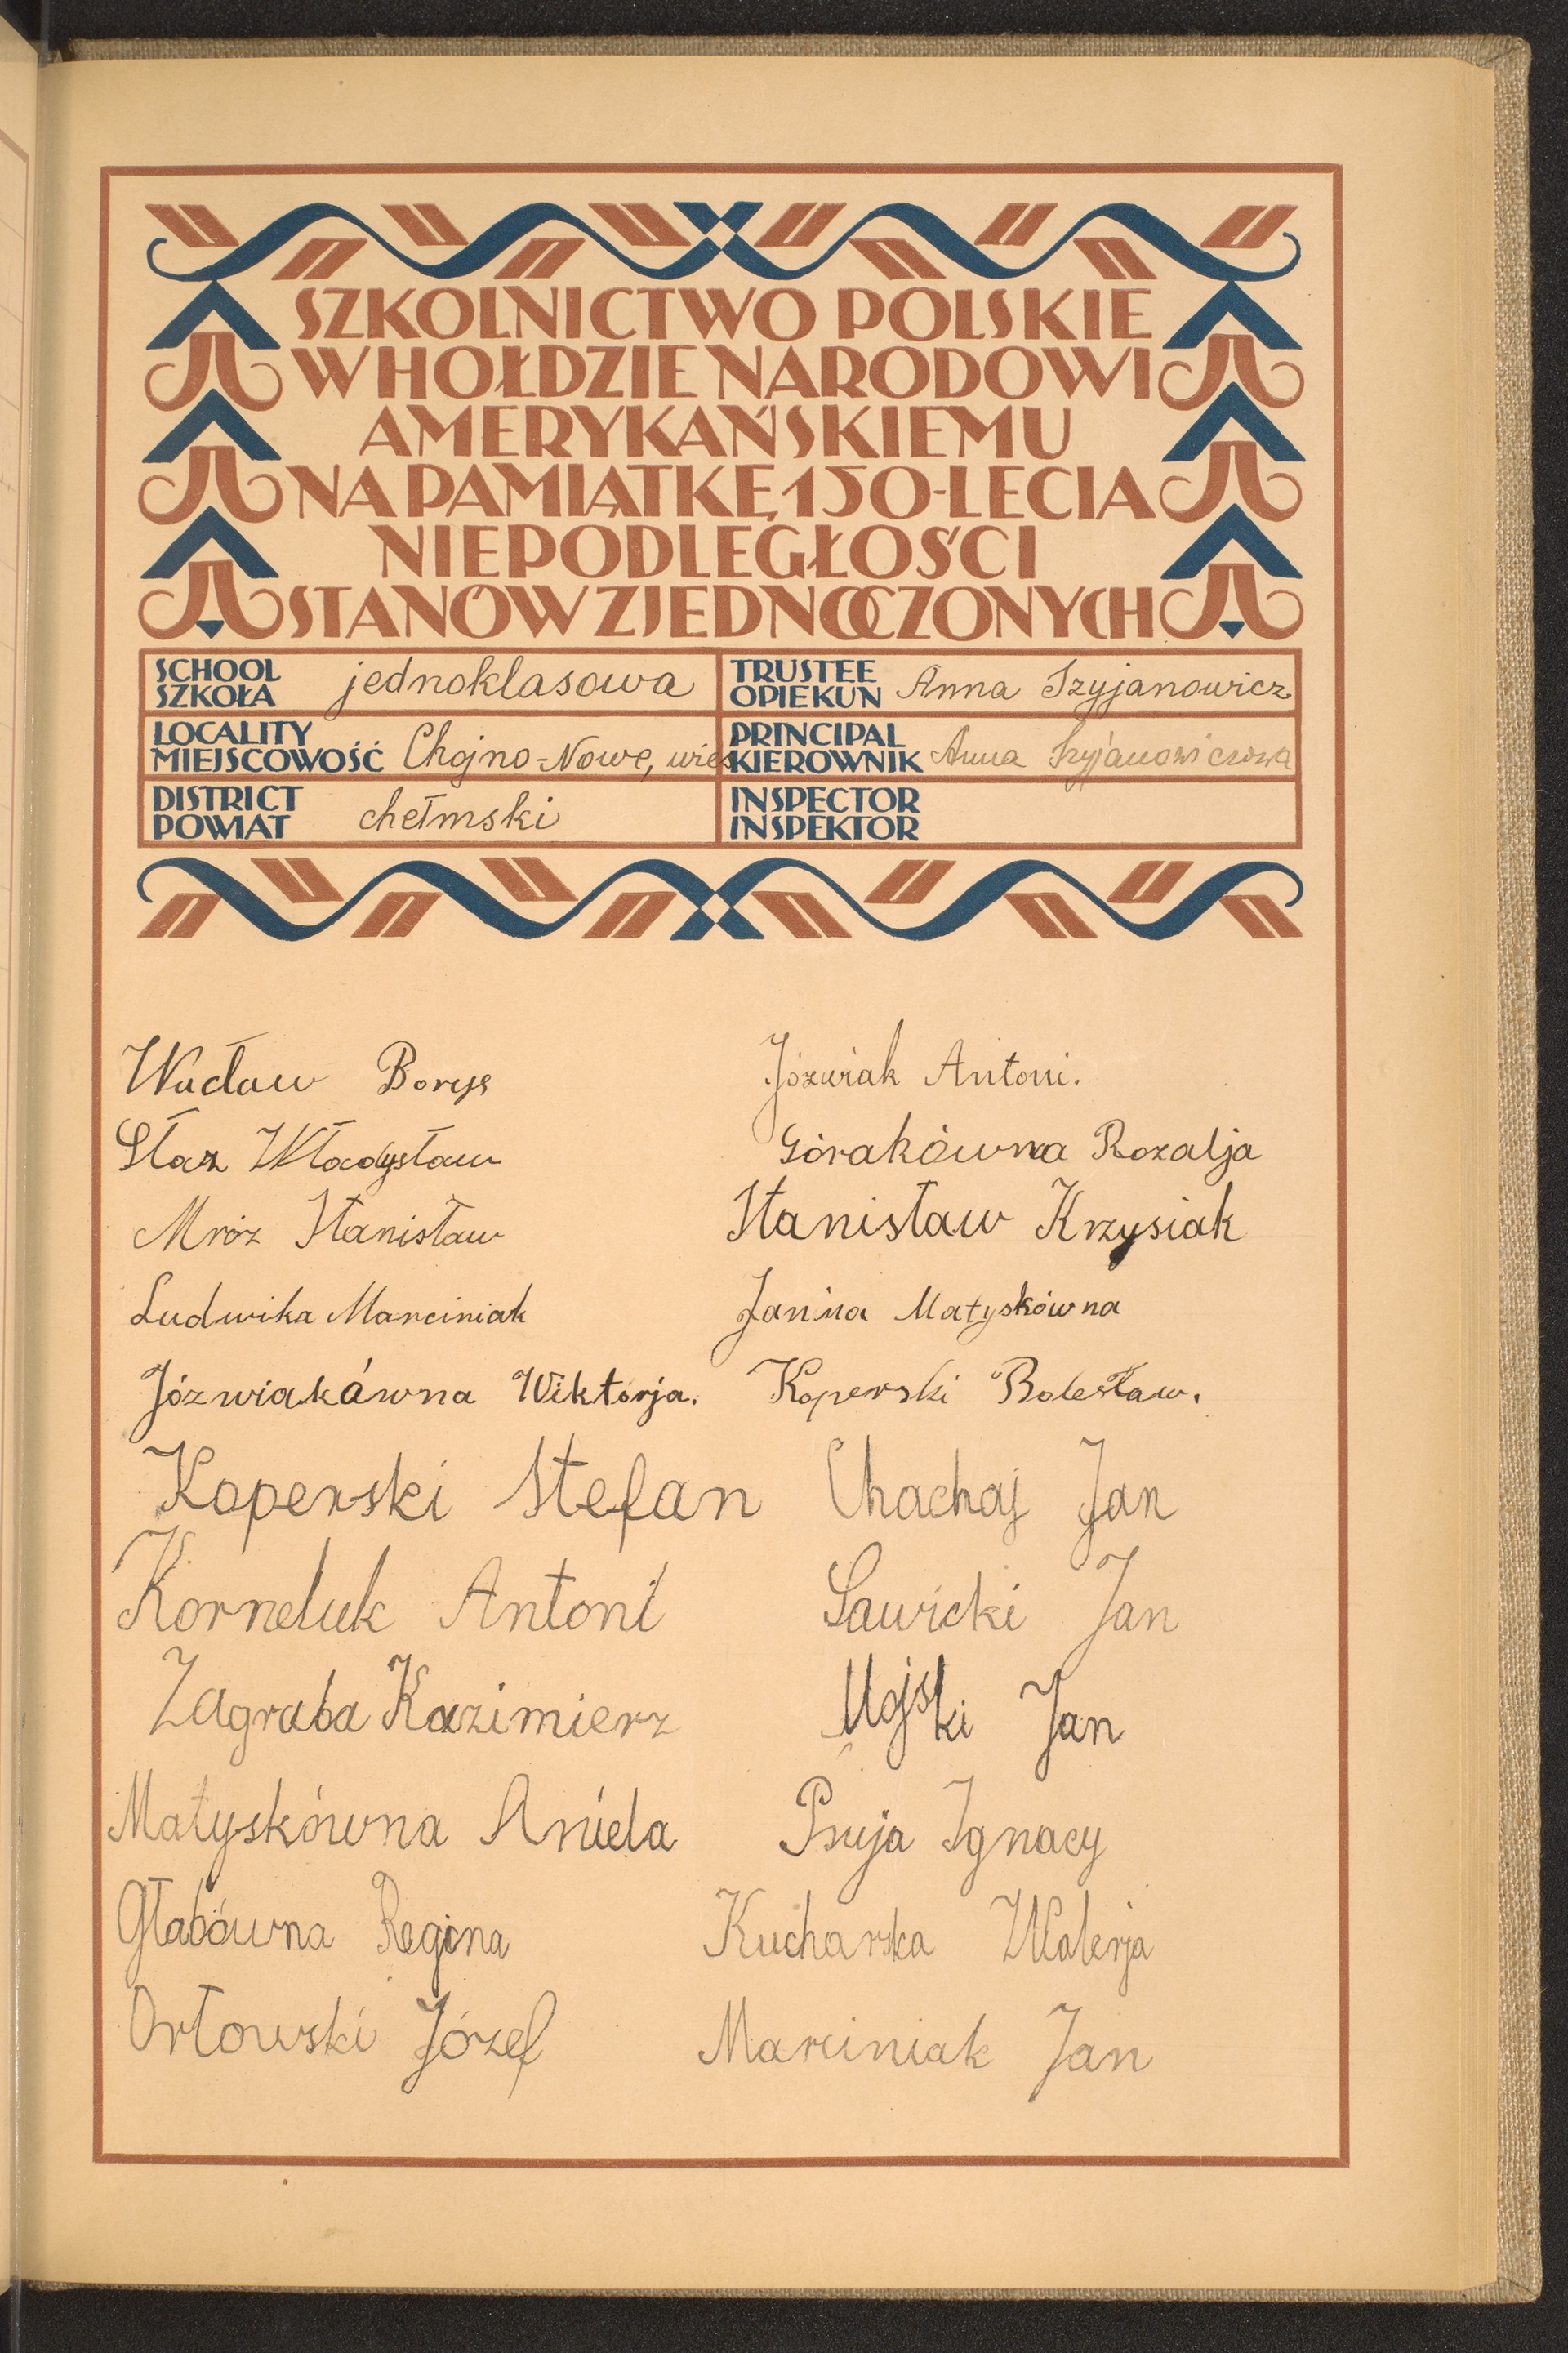 SZKOLNICTWO POLSKIE
W HOŁDZIE NARODOWI
AMERYKAŃSKIEMU
NA PAMIĄTKĘ 150-LECIA
NIEPODLEGŁOŚCI
STANÓW ZJEDNOCZONYCH
SCHOOL
SZKOŁA jednoklasowa
TRUSTEE
OPIEKUN Anna Szyjanowicz
LOCALITY
MIEJSCOWOŚĆ Chojno-Nowe, wieś
PRINCIPAL
KIEROWNIK Anna Szyjanowiczowa
DISTRICT
POWIAT chełmski
INSPECTOR
INSPEKTOR
Wacław Borys
Józwiak Antoni.
Staz Władysław
Górakówna Rozalja
Mróz Stanisław
Stanisław Krzysiak
Ludwika Marciniak
Janina Matyskówna
Józwiakówna Wiktorja.
Koperski Bolesław.
Koperski Stefan
Chachaj Jan
Korneluk Antoni
Sawicki Jan
Zagraba Kazimierz
Mojski Jan
Matyskówna Aniela
Psuja Ignacy
Głabówna Regina
Kucharska Walerja
Orłowski Józef
Marciniak Jan